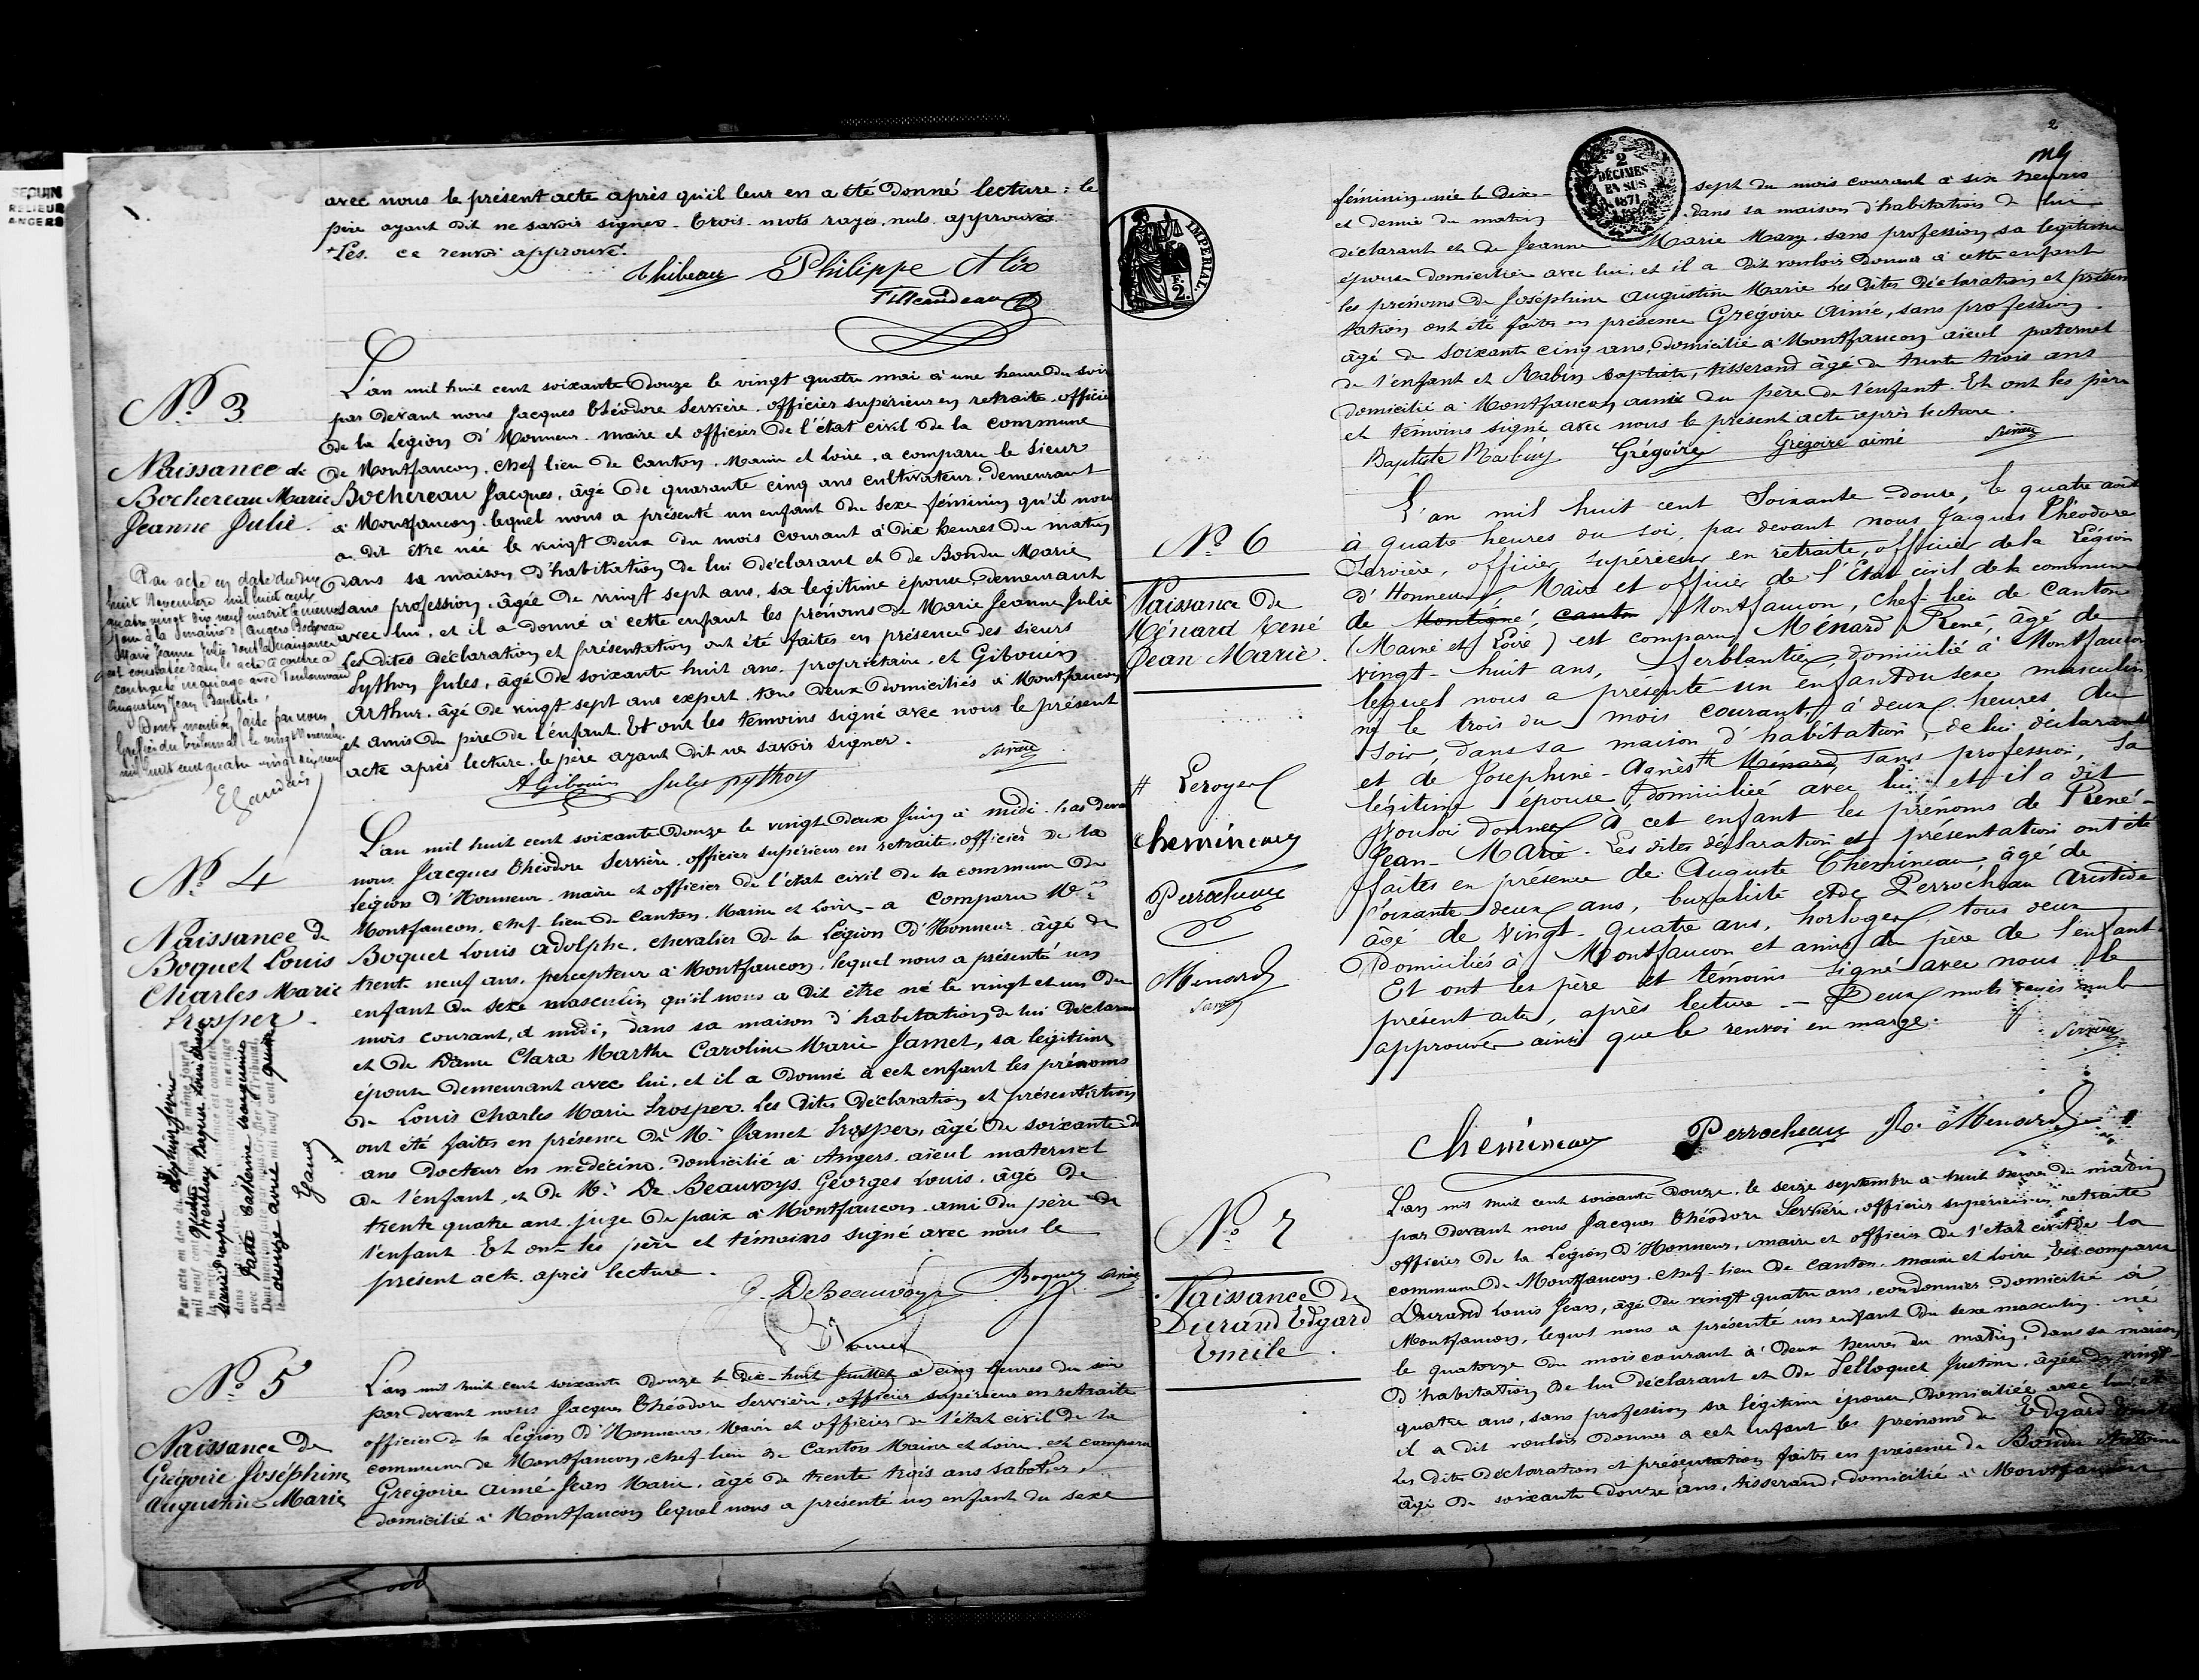 SEQUIN
RELIEUR
ANGERS
avec nous le présent acte après qu'il leur en a été donné lecture : le
père ayant dit ne savoir signer. Trois mots rayés nuls approuvés
+ Les. ce renvoi approuvé.
Thibeau Philippe Alix
N° 3
Naissance de
Bochereau Marie
Jeanne Julie.
L'an mil huit cent soixante douze le vingt quatre mai à une heure du soir
par devant nous Jacques Théodore Servière, officier supérieur en retraite, officier
de la Légion d'Honneur, maire et officier de l'état civil de la commune
de Montfaucon, chef lieu de Canton, Maine et Loire, a comparu le sieur
Bochereau Jacques, âgé de quarante cinq ans cultivateur, demeurant
à Montfaucon, lequel nous a présenté un enfant du sexe féminin qu'il nous
a dit être née le vingt deux du mois courant à dix heures du matin
dans sa maison d'habitation de lui déclarant et de Bondu Marie
sans profession, âgée de vingt sept ans, sa légitime épouse demeurant
avec lui, et il a donné à cette enfant les prénoms de Marie Jeanne Julie
Les dites déclaration et présentation ont été faites en présence des sieurs
Python Jules, âgé de soixante huit ans, propriétaire, et Gibouin
Arthur, âgé de vingt sept ans expert, tous deux domiciliés à Montfaucon
et amis du père de l'enfant. Et ont les témoins signé avec nous le présent
acte après lecture, le père ayant dit ne savoir signer.
A Gibouin Jules Python Servière
Par acte en date du dix
huit Novembre mil huit cent
quatre vingt dix neuf inscrit le même
jour à la mairie d'Angers Bochereau
Marie Jeanne Julie dont la naissance
est constatée dans le acte ci contre a
contracté mariage avec
Augustin Jean Baptiste.
Dont mention faite par nous,
Greffier du tribunal, le vingt Novembre
mil huit cent quatre vingt dix neuf
N° 4
Naissance de
Boquel Louis
Charles Marie
Prosper.
L'an mil huit cent soixante douze le vingt deux Juin à midi. par devant
nous Jacques Théodore Servière, officier supérieur en retraite, officier de la
Légion d'Honneur, maire et officier de l'état civil de la commune de
Montfaucon, chef-lieu de Canton, Maine et Loire - a comparu Mr
Boquel Louis Adolphe, chevalier de la Légion d'Honneur, âgé de
trente neuf ans, percepteur à Montfaucon, lequel nous a présenté un
enfant du sexe masculin qu'il nous a dit être né le vingt et un du
mois courant, à midi, dans sa maison d'habitation de lui déclarant
et de Dame Clara Marthe Caroline Marie Jamet, sa légitime
épouse demeurant avec lui, et il a donné à cet enfant les prénoms
de Louis Charles Marie Prosper. Les dites déclaration et présentation
ont été faites en présence de Mr Jamet Prosper, âgé de soixante
ans docteur en médecine, domicilié à Angers, aïeul maternel
de l'enfant, et de Mr De Beauvoys Georges Louis, âgé de
trente quatre ans juge de paix à Montfaucon ami du père de
l'enfant Et ont les père et témoins signé avec nous le
présent acte après lecture.
G. DeBeauvoys Boquel Servière
Jamet
Par acte en date du
mil neuf cent quatre
avec
N° 5
Naissance de
Grégoire Joséphine
Augustine Marie
L'an mil huit cent soixante douze le dix-huit Juillet à cinq heures du soir
par devant nous Jacques Théodore Servière, officier supérieur en retraite
officier de la Légion d'Honneur, Maire et officier de l'état civil de la
commune de Montfaucon, chef-lieu de Canton Maine et Loire, est comparu
Grégoire Aimé Jean Marie, âgé de trente trois ans sabotier,
domicilié à Montfaucon lequel nous a présenté un enfant du sexe
2
IMPÉRIAL
F.
2.
2
DÉCIMES
EN SUS
1871
féminin née le dix-sept du mois courant à six heures
et demie du matin dans sa maison d'habitation de lui
déclarant et de Jeanne Marie Mary, sans profession sa légitime
épouse domiciliée avec lui, et il a dit vouloir donner à cette enfant
les prénoms de Joséphine Augustine Marie Les dites déclaration et présen
tation ont été faites en présence Grégoire Aimé, sans profession
âgé de soixante cinq ans, domicilié à Montfaucon aïeul paternel
de l'enfant et Rabin Baptiste, tisserand âgé de trente trois ans
domicilié à Montfaucon amie du père de l'enfant. Et ont les père
et témoins signé avec nous le présent acte après lecture.
Baptiste Rabin Grégoire Gregoire aimé Servière
N° 6
Naissance de
Ménard René
Jean Marie.
L'an mil huit cent soixante-douze, le quatre août
à quatre heures du soir, par devant nous Jacques Théodore
Servière, officier supérieur en retraite, officier de la Légion
d'Honneur Maire et officier de l'Etat civil de la commune
de Montigné, canto Montfaucon, chef-lieu de Canton
(Maine et Loire) est comparu Ménard René, âgé de
vingt-huit ans, ferblantier, domicilié à Montfaucon
lequel nous a présenté un enfant du sexe masculin,
né le trois du mois courant à deux heures du
soir, dans sa maison d'habitation, de lui déclarant
et de Joséphine-Agnès # Ménard, sans profession, sa
légitime épouse, domiciliée avec lui, et il a dit
vouloir donner à cet enfant les prénoms de René-
Jean-Marie. Les dites déclaration et présentation ont été
faites en présence de Auguste Chemineau âgé de
soixante deux ans, buraliste et de Perrocheau Aristide
âgé de vingt-quatre ans, horloger, tous deux
domiciliés à Montfaucon et amis du père de l'enfant.
Et ont les père et témoins signé avec nous le
présent acte, après lecture - Deux mots rayés nuls
approuvés ainsi que le renvoi en marge.
Servière
# Leroyer
Chemineau
Perrocheau
Menard
Servière
Chemineau Perrocheau R. Menard
N° 7
Naissance de
Durand Edgard
Emile.
L'an mil huit cent soixante douze, le seize septembre à huit heures du matin
par devant nous Jacques Théodore Servière, officier supérieur en retraite
officier de la Légion d'Honneur, maire et officier de l'état civil de la
commune de Montfaucon, chef-lieu de canton, maine et Loire, est comparu
Durand Louis Jean, âgé de vingt quatre ans, cordonnier domicilié à
Montfaucon, lequel nous a présenté un enfant du sexe masculin né
le quatorze du mois courant à deux heures du matin, dans sa maison
d'habitation de lui déclarant et de Pelloquet Justine, âgée de vingt-
quatre ans, sans profession sa légitime épouse, domiciliée avec lui, et
il a dit vouloir donner à cet enfant les prénoms de Edgard Emile
Les dites déclaration et présentation faites en présence de Bondu
âgé de soixante douze ans, tisserand, domicilié à Montfaucon